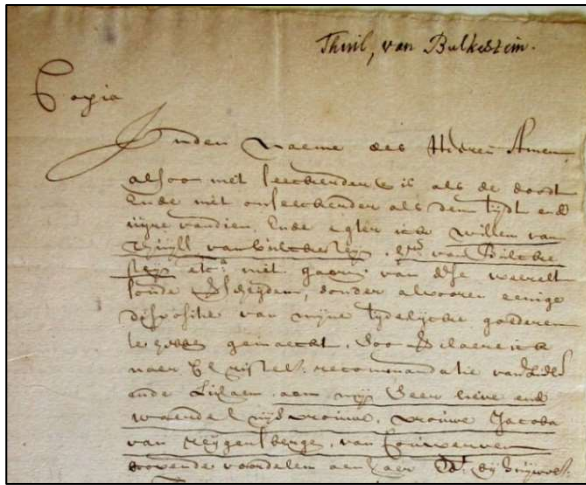 Thuil, van Bulkestein.
Copia
Inden naeme des Heeren Amen,
alsoo niet seeckerder is als de doodt
Ende niet onseeckerder als den tijdt end
uijre vandien, Ende egter ick willem van
Thuijll van bulckesteijn, van Bulcke
steijn etc. niet gaern van dese weerelt
soude scheijden, sonder alvooren eenige
dispositie van mijne tijdelijcke goederen
te gemaeckt, Soo ick
naer Christel: recommandatie van
ende Lichaem, aen mijn seer lieve end
waerde vrouwe, vrouwe Jacoba
van Reijgersberge, van Couwerven
voordelen aen haer bij